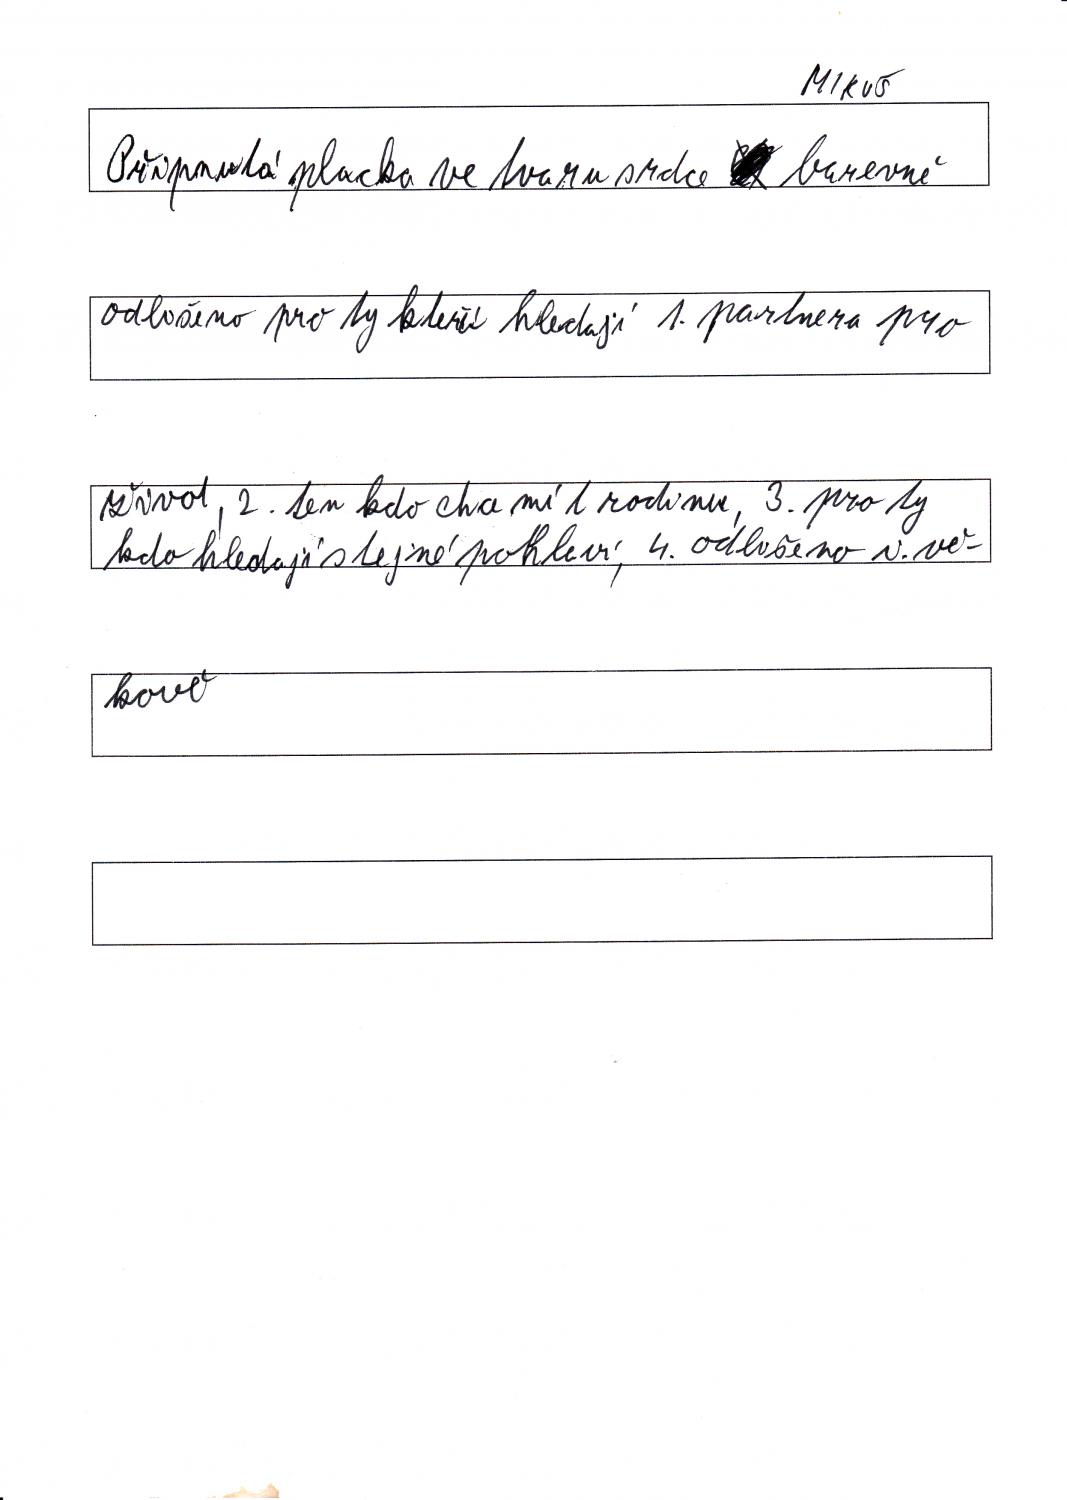 MIKUŠ
Připnutá placka ve tvaru srdce barevně
odlišeno pro ty kteří hledají 1. partnera pro
život, 2. ten kdo chce mít rodinu, 3. pro ty
kdo hledají stejné pohlaví, 4. odlišeno i. vě-
kově